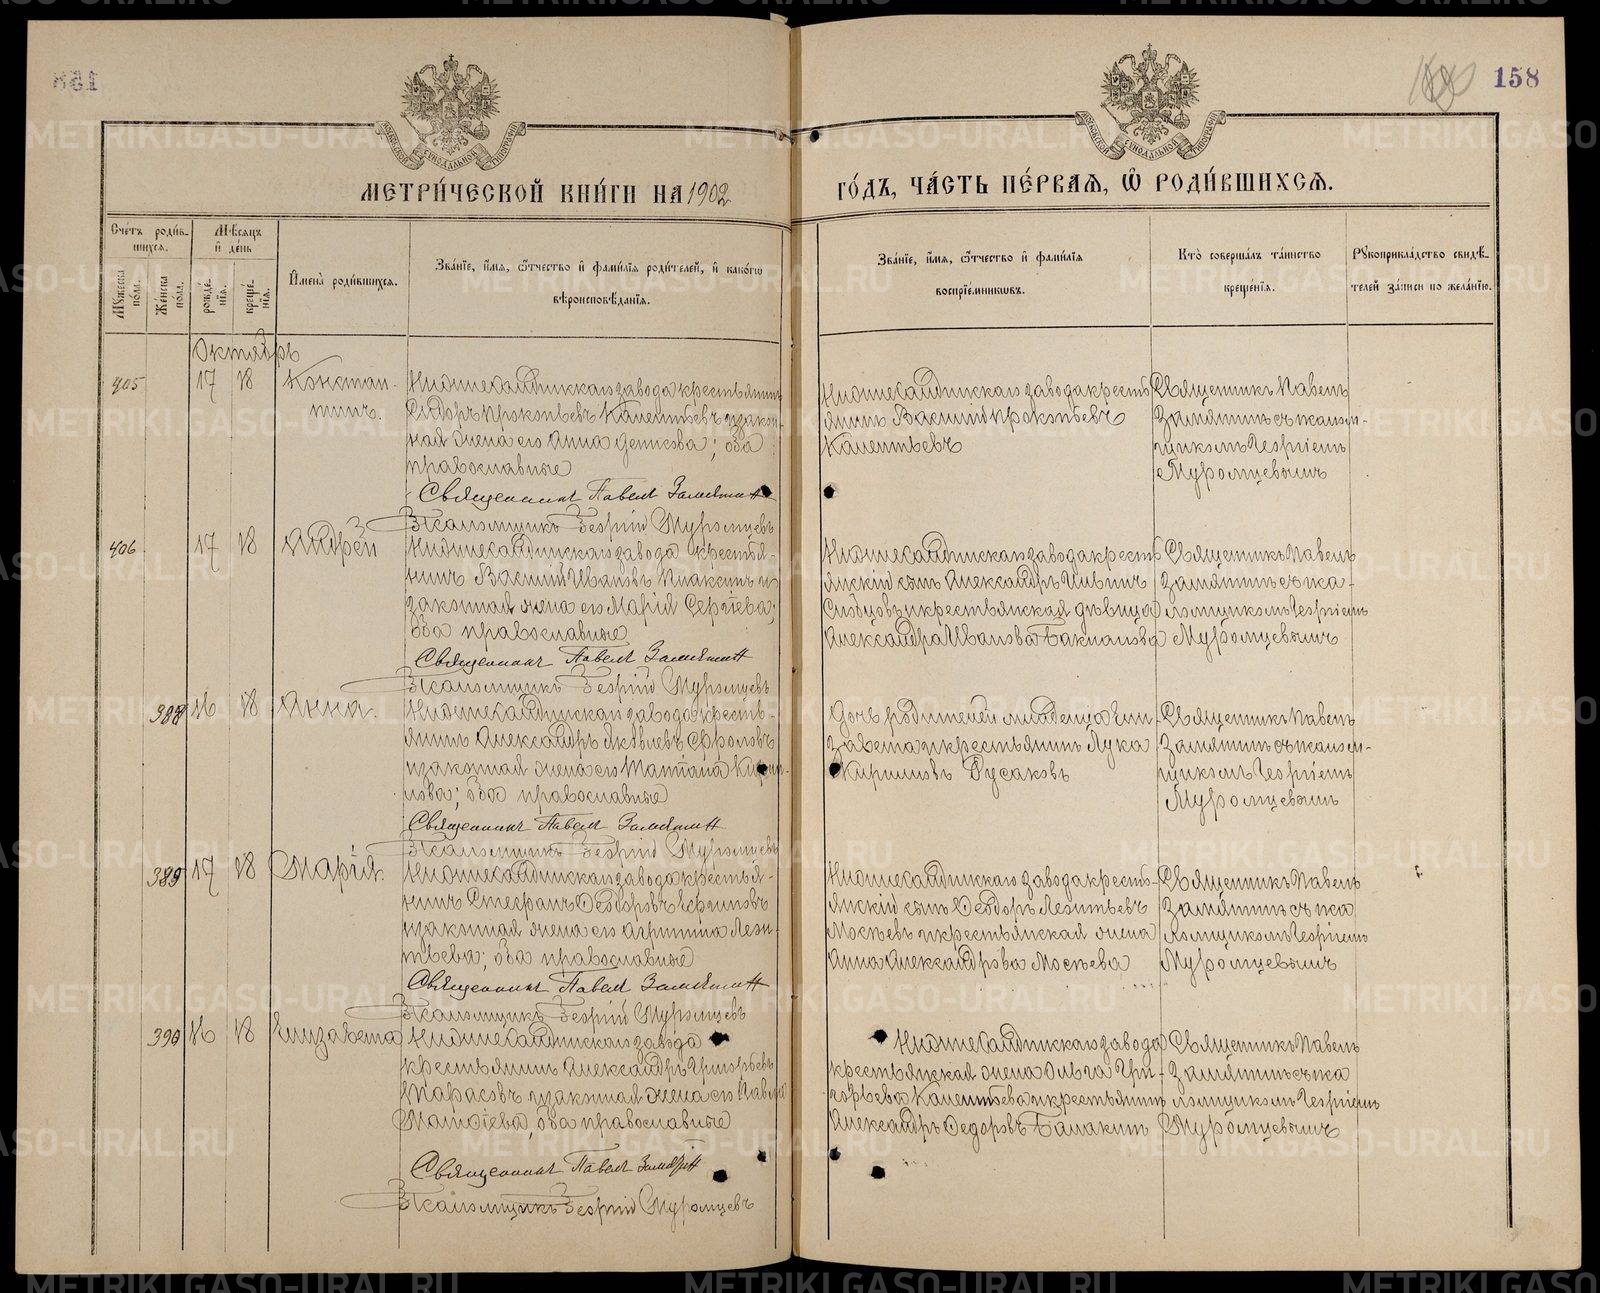 158
МЕТРИ́ЧЕСКОЙ КНИ́ГИ НА 1902
ГО́ДЪ, ЧА́СТЬ ПЕ́РВАѦ, Ѡ РОДИ́ВШИХСѦ.
Сче́тъ роди́в-
шихся.
Мꙋ́жеска по́ла.
Же́нска по́ла.
Мѣ́сяцъ и де́нь
рожде́-нїя.
креще́-нїя.
Имена̀ роди́вшихся.
Зва́нїе, и́мя, ѻ҆́тчество и фами́лїя роди́телей, и како́гѡ
вѣроисповѣ́данїя.
Зва́нїе, и́мя, ѻ҆́тчество и фами́лїя
воспрїе́мникѡвъ.
Кто̀ соверша́лъ та́инство
креще́нїя.
Рꙋкоприкла́дство свидѣ́-
телей за́писи по жела́нїю.
Октябрь
405 17 18 Констан-
тинъ.
Нижнесалдинскаго завода крестьянинъ
Сидоръ Прокопьевъ Калентьевъ и закон-
ная жена его Анна Денисова; оба
православные
Священникъ Павелъ Замятин
Псаломщикъ Георгій Муромцевъ
Нижнесалдинскаго завода кресть-
янинъ Василій Прокопьевъ
Калентьевъ
Священникъ Павелъ
Замятинъ съ псалом-
щикомъ Георгіемъ
Муромцевымъ
406 17 18 Андрей
Нижнесалдинскаго завода крестья-
нинъ Василій Ивановъ Плаксинъ и
законная жена его Марія Сергіева;
оба православные
Священникъ Павелъ Замятин
Псаломщикъ Георгій Муромцевъ
Нижнесалдинскаго завода кресть-
янскій сынъ Александръ Ильинъ
и крестьянская дѣвица
Александра Иванова
Священникъ Павелъ
Замятинъ съ пса-
ломщикомъ Георгіемъ
Муромцевымъ
388 16 18 Анна.
Нижнесалдинскаго завода кресть-
янинъ Александръ Яковлевъ Фроловъ
и законная жена его Татіана Кирил-
лова; оба православные
Священникъ Павелъ Замятин
Псаломщикъ Георгій Муромцевъ
Дочь родителей младенца Ели-
завета и крестьянинъ Лука
Кирилловъ Русаковъ
Священникъ Павелъ
Замятинъ съ псалом-
щикомъ Георгіемъ
Муромцевымъ
389 17 18 Марія.
Нижнесалдинскаго завода крестья-
нинъ Стефанъ Ѳеодоровъ
и законная жена его Агриппа Леон-
тьева; оба православные
Священникъ Павелъ Замятин
Псаломщикъ Георгій Муромцевъ
Нижнесалдинскаго завода кресть-
янскій сынъ Ѳеодоръ Леонтьевъ
Мосѣевъ и крестьянская жена
Анна Александрова Мосѣева
Священникъ Павелъ
Замятинъ съ пса
ломщикомъ Георгіемъ
Муромцевымъ
390 16 18 Елизавета
Нижнесалдинскаго завода
крестьянинъ Александръ Григорьевъ
Тарасовъ и законная жена его
Матѳіева, оба православные
Священникъ Павелъ Замятин
Псаломщикъ Георгій Муромцевъ
Нижнесалдинскаго завода
крестьянская жена Ольга Гри-
горьева Калентьева и крестьянинъ
Александръ Ѳедоровъ Балакинъ
Священникъ Павелъ
Замятинъ съ пса
ломщикомъ Георгіемъ
Муромцевымъ
METRIKI.GASO-URAL.RU